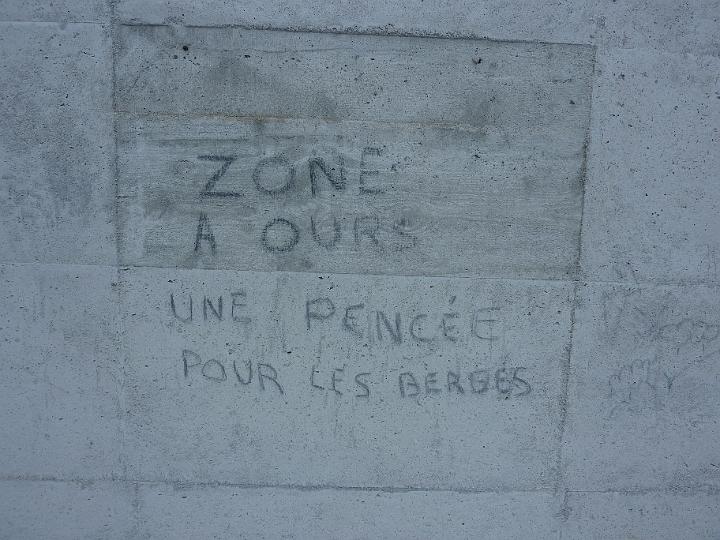 ZONE
A OURS
UNE PENCÉE
POUR LES BERGES